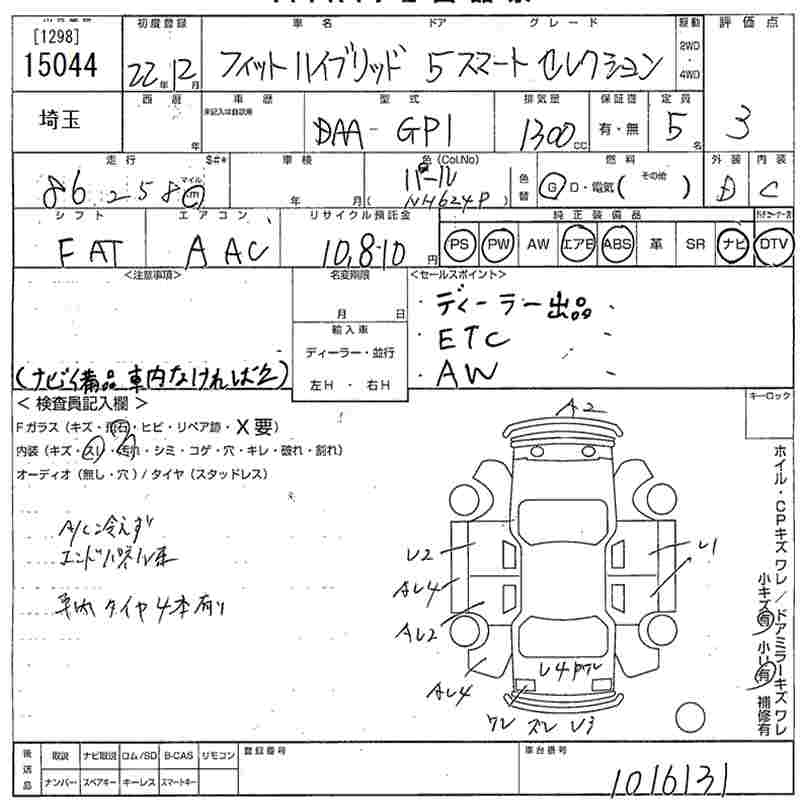 [1298]
15044
初度登録
車名
ドア
グレード
駆動
評価点
22年12月
フィットハイブリッド 5 スマートセレクション
2WD
・
4WD
埼玉
西暦
年
車歴
未記入は自家用
型式
排気量
保証書
定員
DAA-GP1
1300cc
有・無
5名
3
走行
$#*
車検
色(Col.No)
色替
燃料
外装
内装
86,258
マイル
km
年 月
パール
(NH624P)
G D・電気( その他 )
D
C
シフト
エアコン
リサイクル預託金
純正装備品
FAT
AAC
10,810円
PS
PW
AW
エアB
ABS
革
SR
ナビ
DTV
<注意事項>
名変期限
月 日
輸入車
ディーラー・並行
左H ・ 右H
<セールスポイント>
・ディーラー出品
・ETC
・AW
(ナビ、備品 車内なければ欠)
<検査員記入欄>
Fガラス(キズ・飛石・ヒビ・リペア跡・X要)
内装(キズ・スレ・汚れ・シミ・コゲ・穴・キレ・破れ・割れ)
オーディオ(無し・穴)/タイヤ(スタッドレス)
A/C冷えず
エンドパネル
車内 タイヤ4本有り
キーロック
A2
U2
U1
AU4
AU2
AU4
U4 ワレ
ワレ ズレ U3
ホイル・CPキズワレ/ドアミラーキズワレ
小キズ有 小U有 補修有
後送品
取説
ナビ取説
ロム/SD
B-CAS
リモコン
ナンバー
スペアキー
キーレス
スマートキー
登録番号
車台番号
1016131